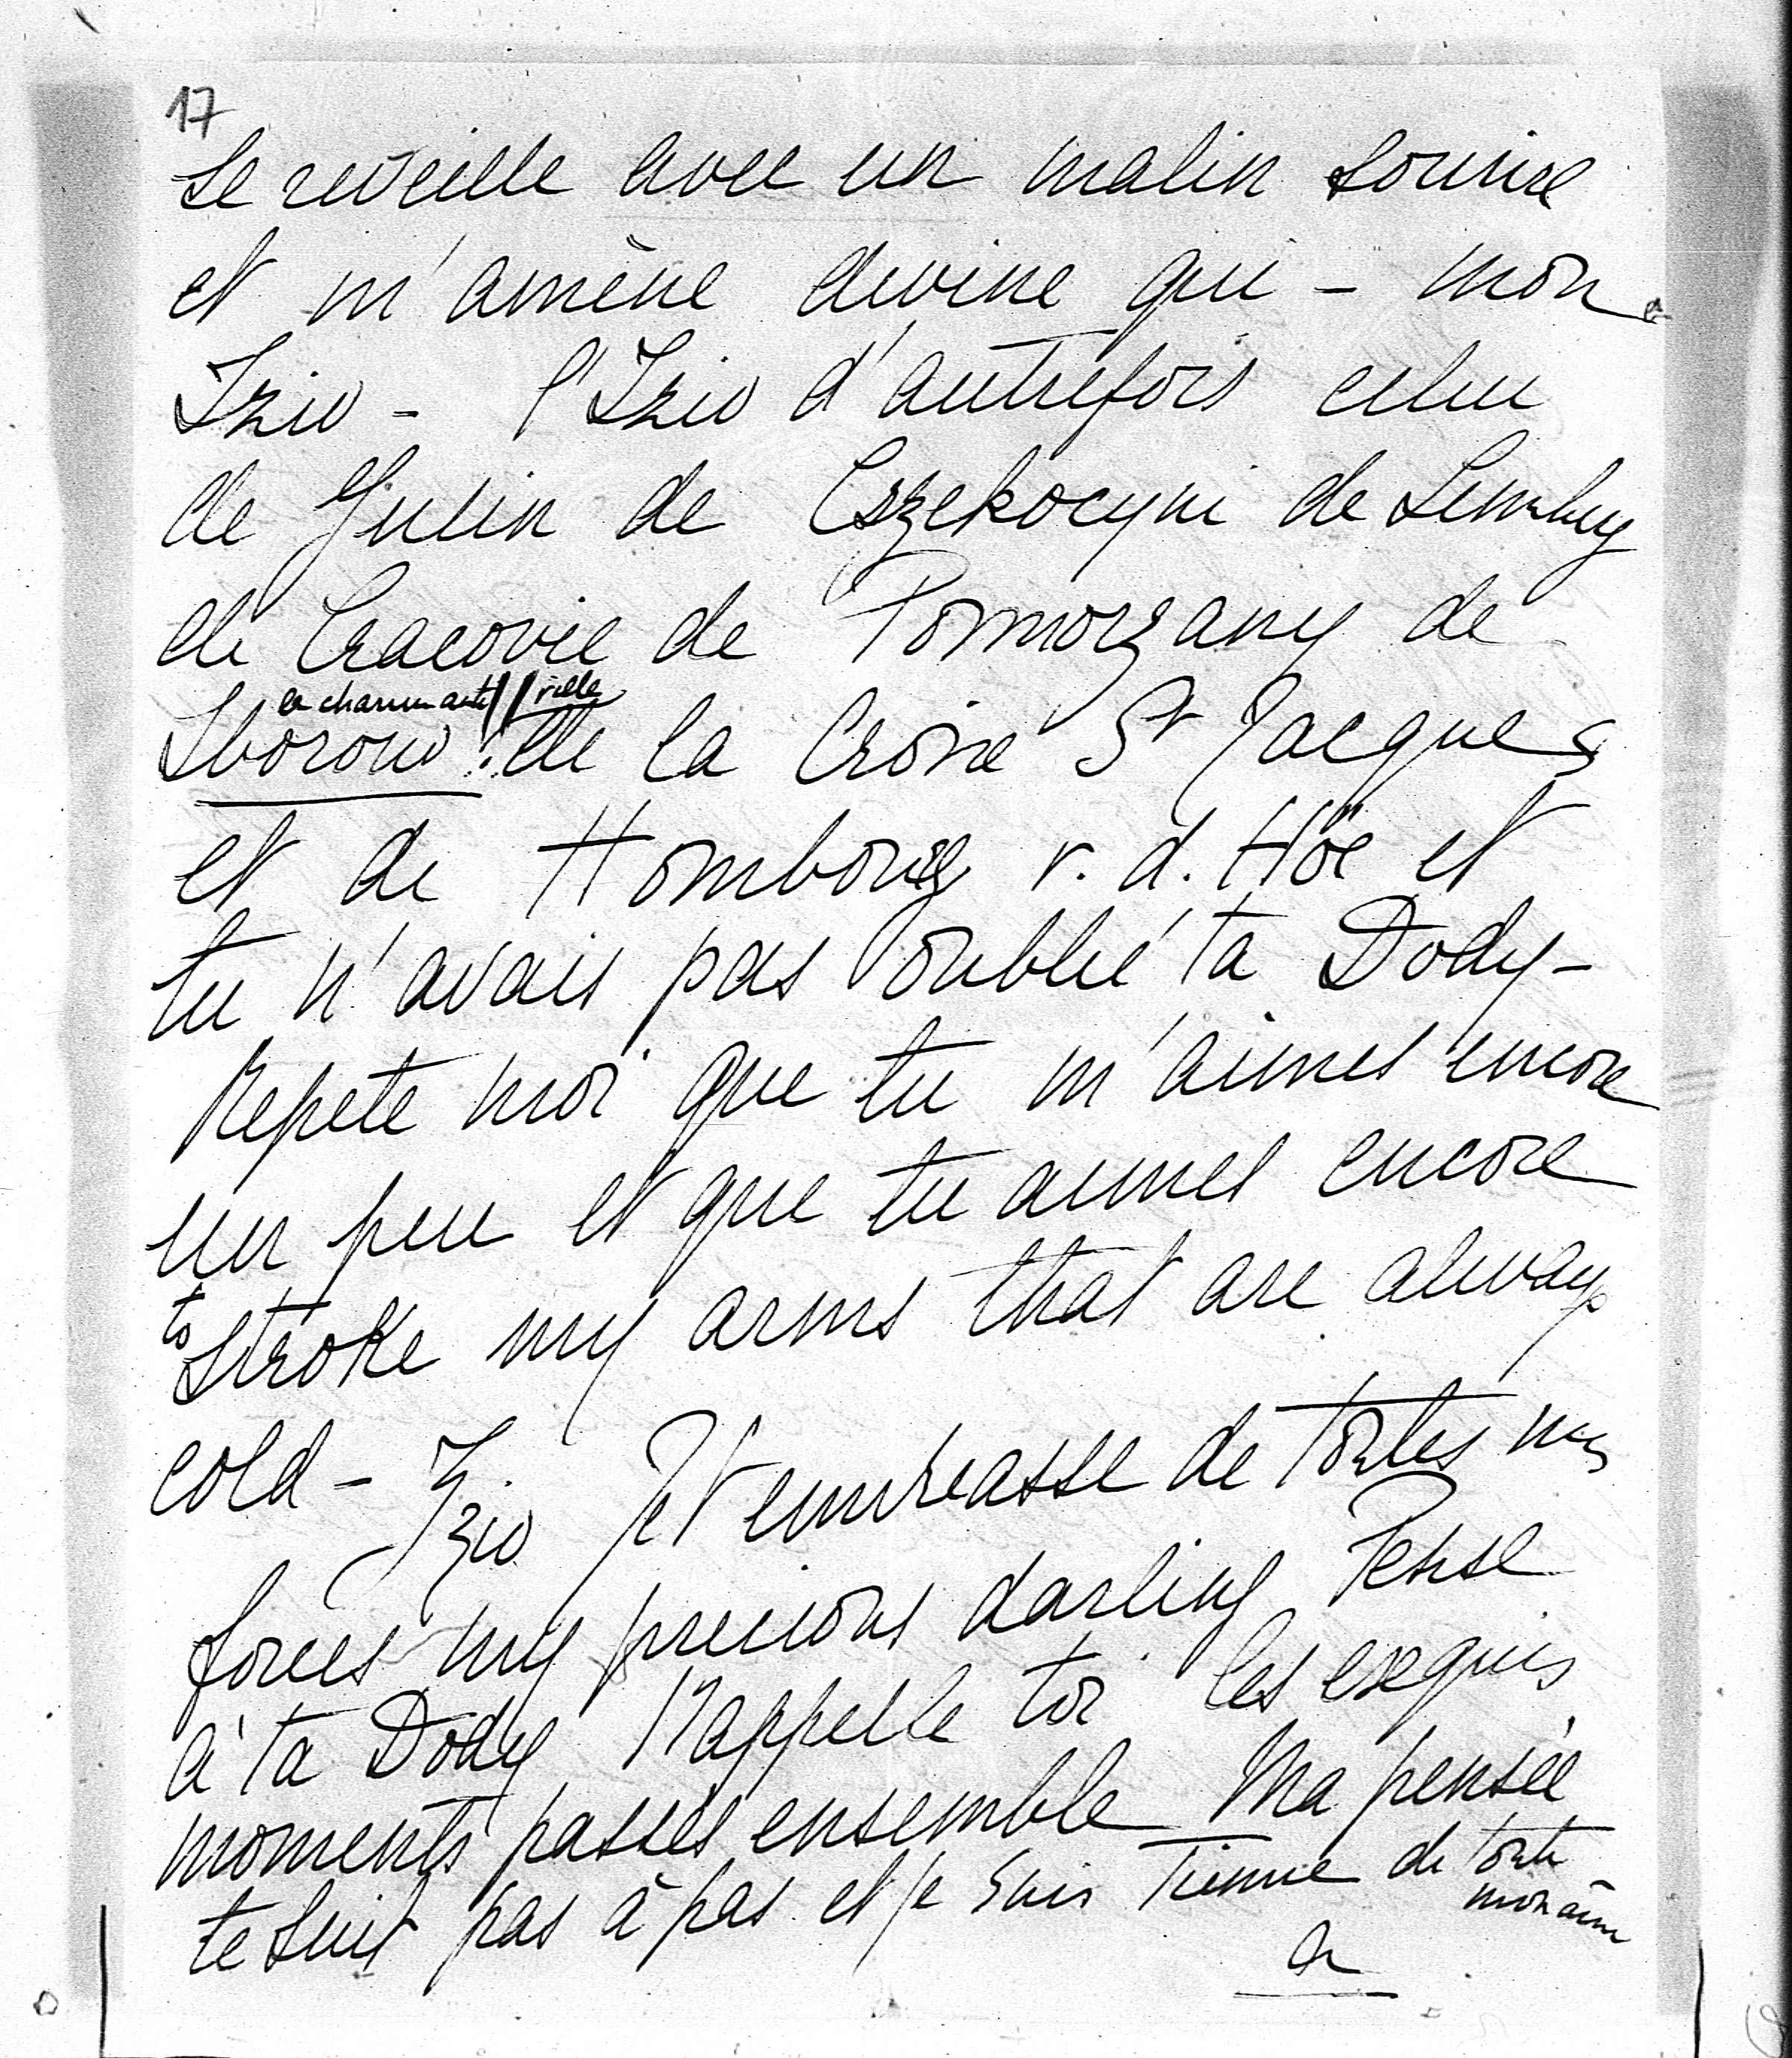 17
se reveille avec un malin sourire
et m'amène devine qui - mon
Izio - l'Izio d'autrefois celui
de Julin de Cszekocyni de Lemberg
de Cracovie de Pomorzany de
la charmante ville
Sborow! de la Croix St Jacques
et de Hombourg v. d. Höe et
tu n'avais pas oublié ta Dody -
Repete moi que tu m'aimes encore
un peu et que tu aimes encore
to stroke my arms that are always
cold - Izio Je t'embrasse de toutes mes
forces my precious darling Pense
à ta Dody Rappelle toi les exquis
moments passés ensemble Ma pensée
te suit pas à pas et je suis Tienne de toute
mon âme